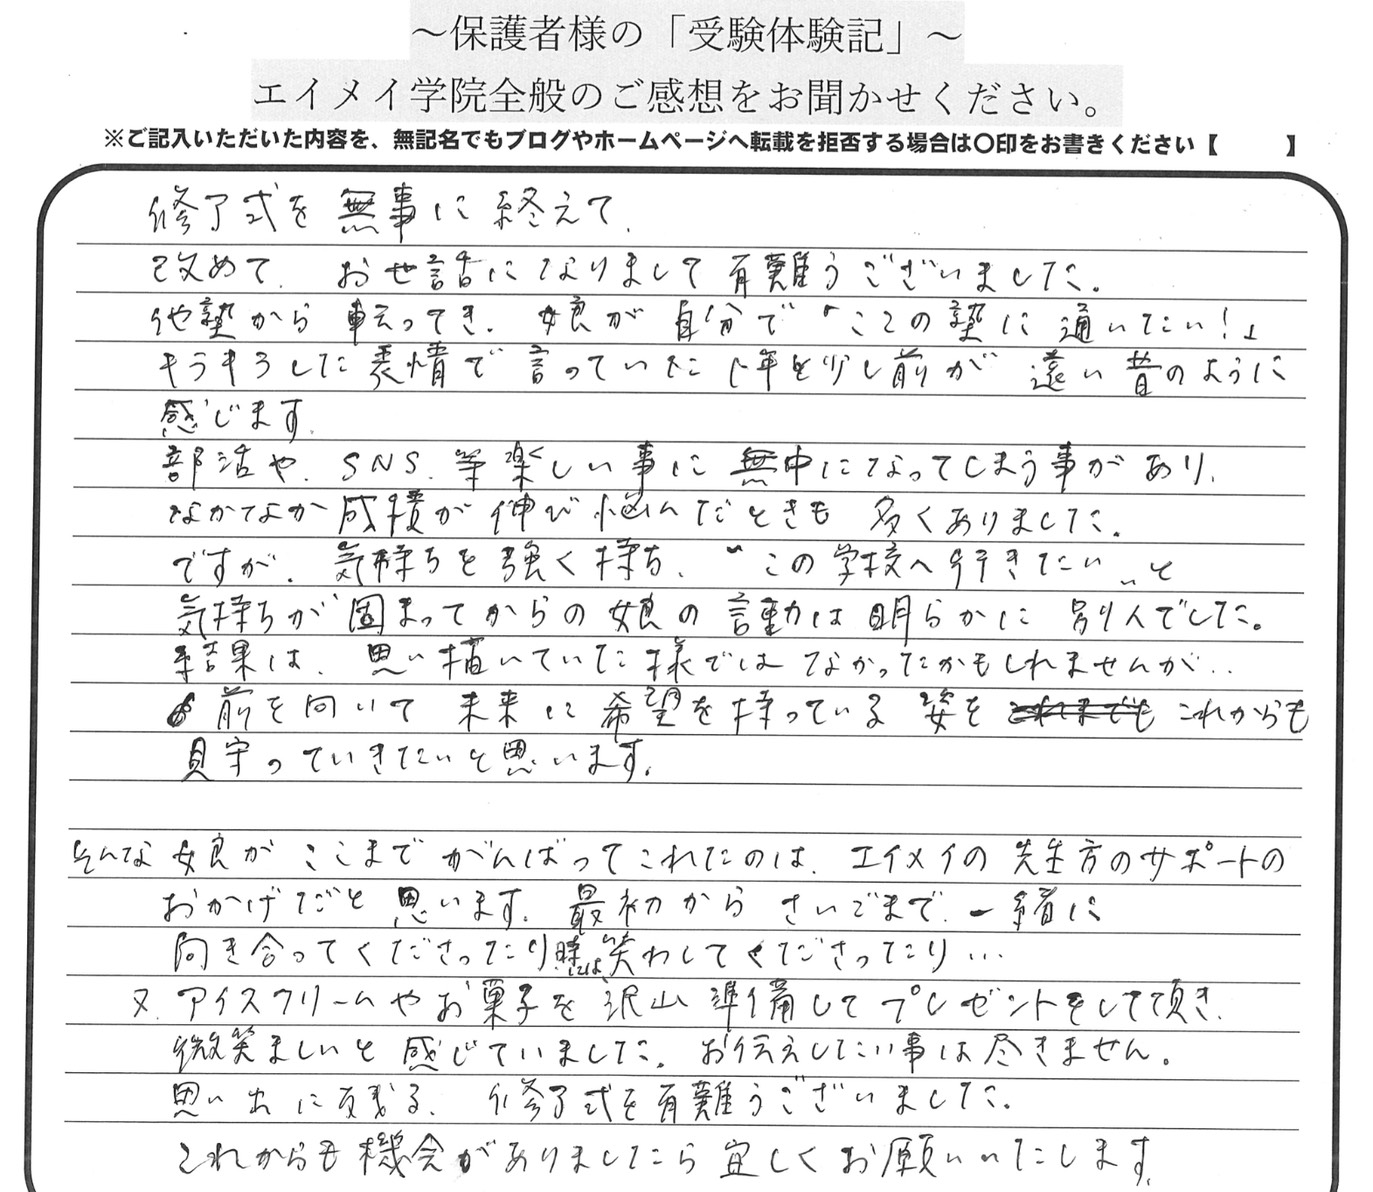 ～保護者様の「受験体験記」～
エイメイ学院全般のご感想をお聞かせください。
※ご記入いただいた内容を、無記名でもブログやホームページへ転載を拒否する場合は〇印をお書きください【　　】
修了式を無事に終えて、
改めて、お世話になりまして有難うございました。
他塾から転ってき、娘が自分で「ここの塾に通いたい！」
キラキラした表情で言っていた1年と少し前が遠い昔のように
感じます。
部活や、SNS、等楽しい事に無中になってしまう事があり、
なかなか成積が伸び悩んだときも多くありました。
ですが、気持ちを強く持ち、〝この学校へ行きたい〟と
気持ちが固まってからの娘の言動は明らかに別人でした。
結果は、思い描いていた様ではなかったかもしれませんが‥
前を向いて未来に希望を持っている姿を これまでも これからも
見守っていきたいと思います。
そんな娘がここまでがんばってこれたのは、エイメイの先生方のサポートの
おかげだと思います。最初からさいごまで、一緒に
向き合ってくださったり時には、笑わしてくださったり…
又、アイスクリームやお菓子を沢山準備してプレゼントをして頂き、
微笑ましいと感じていました。お伝えしたい事は尽きません。
思い出に残る、修了式を有難うございました。
これからも機会がありましたら宜しくお願いいたします。